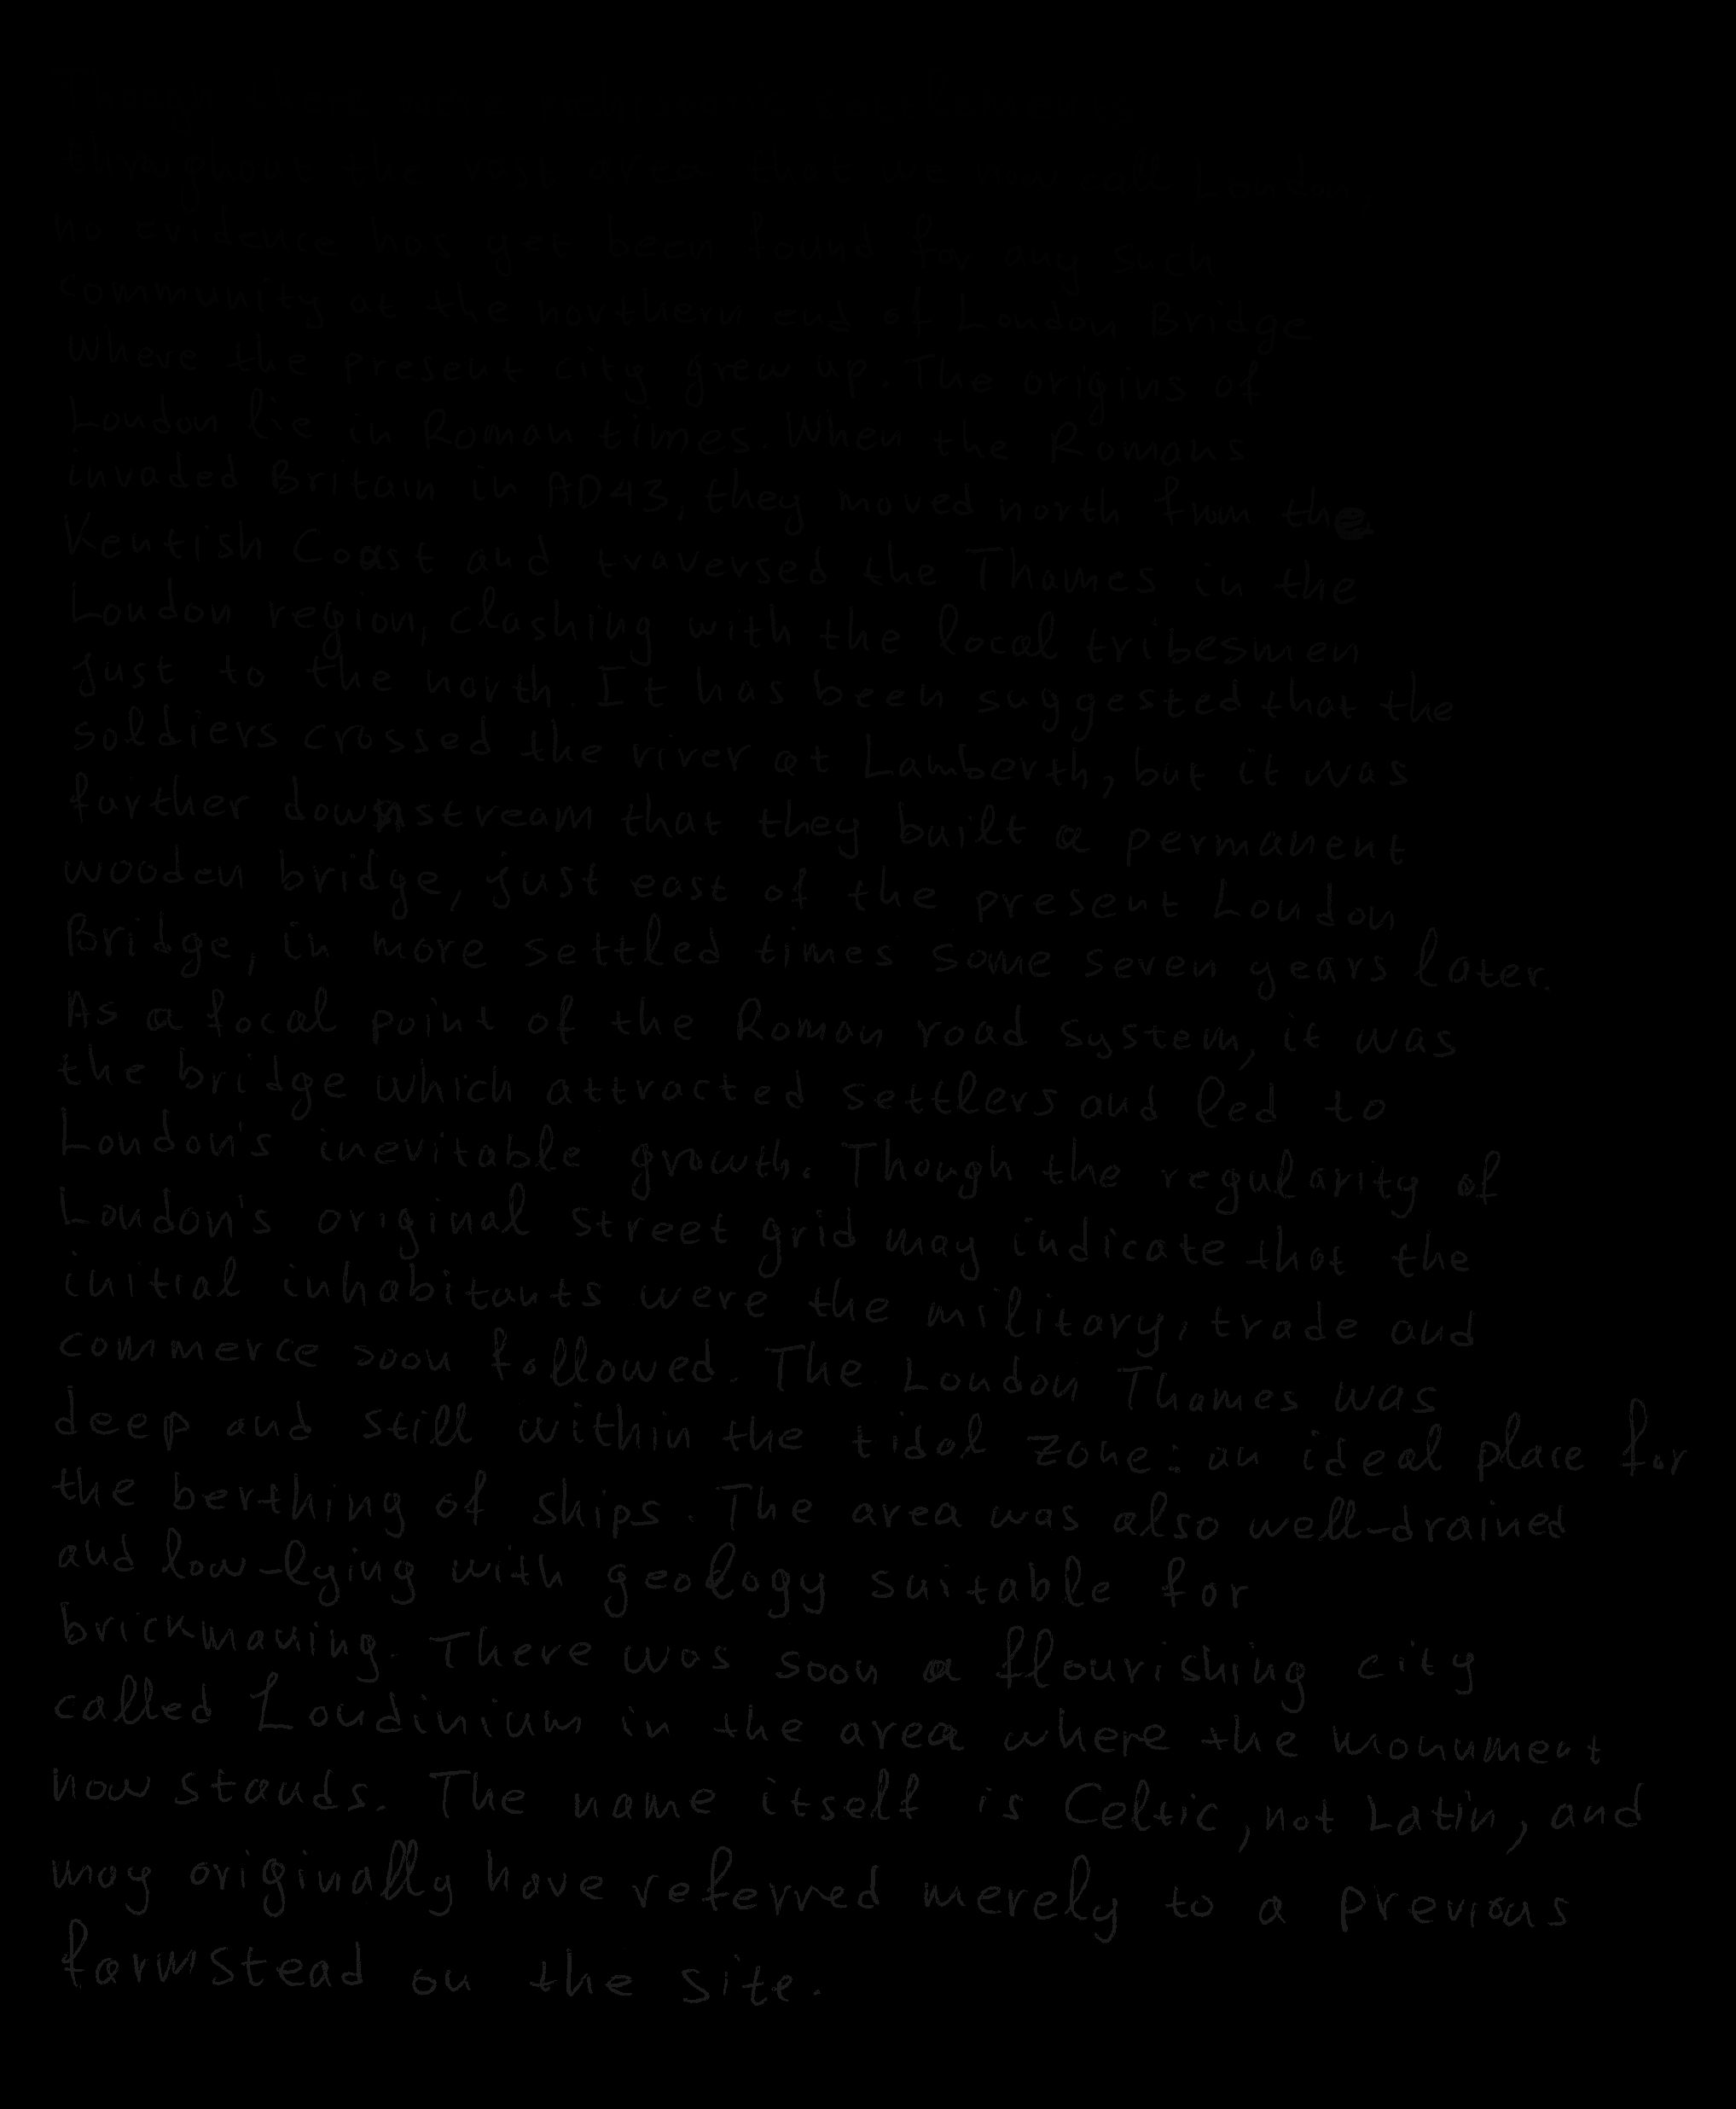 throughout the vast area that we now call London,
no evidence has yet been found for any such
community at the northern end of London Bridge
where the present city grew up. The origins of
London lie in Roman times. When the Romans
invaded Britain in AD43, they moved north from the
Kentish Coast and traversed the Thames in the
London region, clashing with the local tribesmen
just to the north. It has been suggested that the
soldiers crossed the river at Lamberth, but it was
further downstream that they built a permanent
wooden bridge, just east of the present London
Bridge, in more settled times some seven years later.
As a focal point of the Roman road system, it was
the bridge which attracted settlers and led to
London's inevitable growth. Though the regularity of
London's original street grid may indicate that the
initial inhabitants were the military, trade and
commerce soon followed. The London Thames was
deep and still within the tidal zone: an ideal place for
the berthing of ships. The area was also well-drained
and low-lying with geology suitable for
brickmaking. There was soon a flourishing city
called Londinium in the area where the monument
now stands. The name itself is Celtic, not Latin, and
may originally have referred merely to a previous
farmstead on the site.